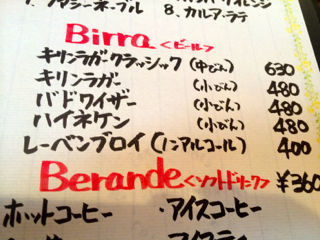 7. ファジーネーブル
8. カルア・ラテ
Birra <ビール>
キリンラガークラッシック (中びん) 630
キリンラガー (小びん) 480
バドワイザー (小びん) 480
ハイネケン (小びん) 480
レーベンブロイ (ノンアルコール) 400
Berande <ソフトドリンク> ¥360
ホットコーヒー ・アイスコーヒー